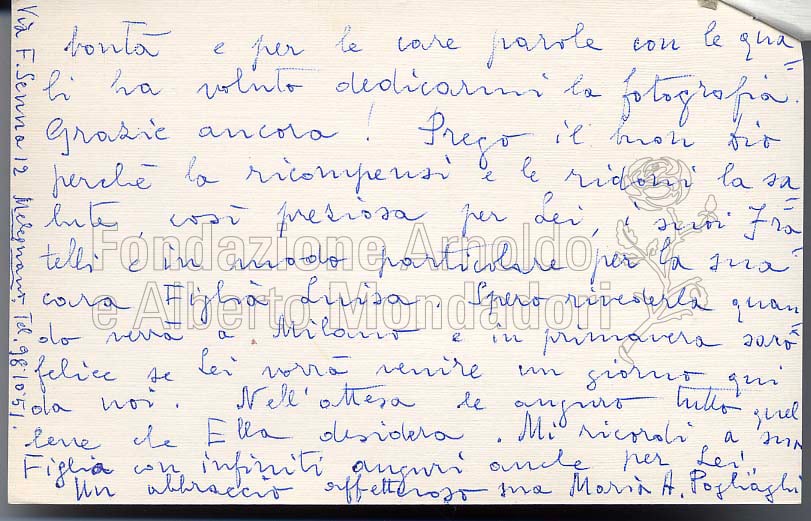 bontà e per le care parole con le qua=
li ha voluto dedicarmi la fotografia.
Grazie ancora! Prego il buon Dio
perchè la ricompensi e le ridoni la sa=
lute, così preziosa per Lei, i suoi Fra=
telli e in modo particolare per la sua
cara Figlia Luisa. Spero rivederla quan=
do verrà a Milano e in primavera sarò
felice se Lei vorrà venire un giorno qui
da noi. Nell'attesa le auguro tutto quel
bene che Ella desidera. Mi ricordi a sua
Figlia con infiniti auguri anche per Lei.
Un abbraccio affettuoso sua Maria A. Pogliaghi
Via F. Senna 12 Melegnano. Tel. 98.10.51.
Fondazione Arnoldo
e Alberto Mondadori